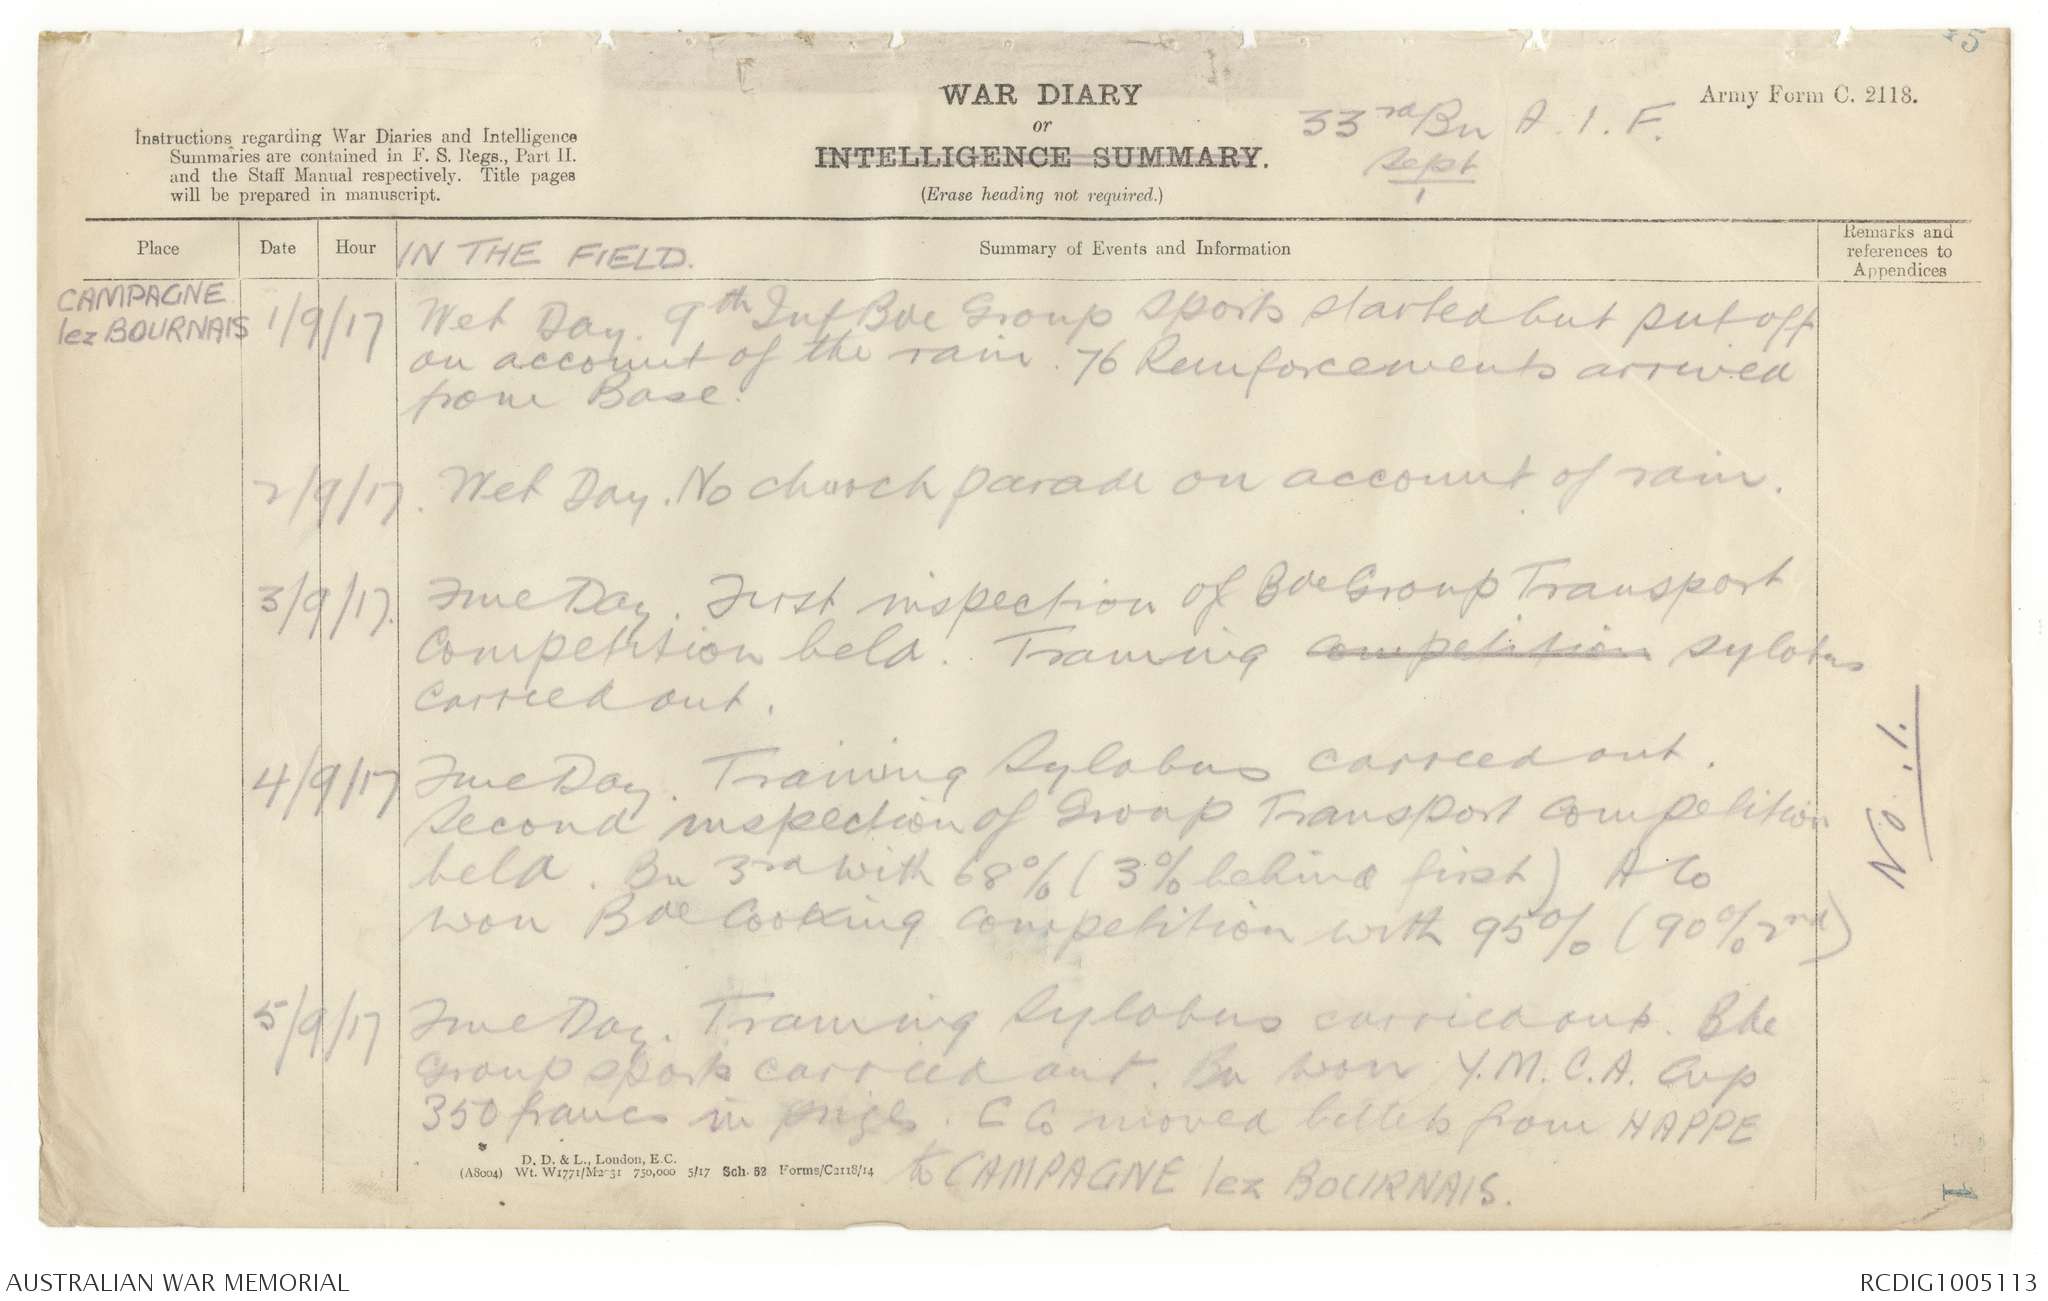 15
WAR DIARY
or
INTELLIGENCE SUMMARY.
(Erase heading not required.)
33rd Bn A. I. F.
Sept
Army Form C. 2118.
Instructions regarding War Diaries and Intelligence
Summaries are contained in F. S. Regs., Part II.
and the Staff Manual respectively. Title pages
will be prepared in manuscript.
Place
Date
Hour
IN THE FIELD.
Summary of Events and Information
Remarks and
references to
Appendices
CAMPAGNE
lez BOURNAIS
1/9/17 Wet Day. 9th Inf Bde Group Sports started but put off
on account of the rain. 76 Reinforcements arrived
from Base.
2/9/17. Wet Day. No church parade on account of rain.
3/9/17. Fine Day. First inspection of Bde Group Transport
Competition held. Training competition sylabus
carried out.
4/9/17 Fine Day. Training Sylabus carried out.
Second inspection of Group Transport Competition
held. Bn 3rd with 68% (3% behind first) A Co
won Bde Cooking Competition with 95% (90% 2nd)
5/9/17 Fine Day. Training Sylabus carried out. Bde
Group sports carried out. Bn won Y.M.C.A. Cup
350 francs in prizes. C Co moved billets from HAPPE
to CAMPAGNE lez BOURNAIS.
No. 1.
D. D. & L., London, E.C.
(A8004) Wt. W1771/M2031 750,000 5/17 Sch. 52 Forms/C2118/14
1
AUSTRALIAN WAR MEMORIAL
RCDIG1005113